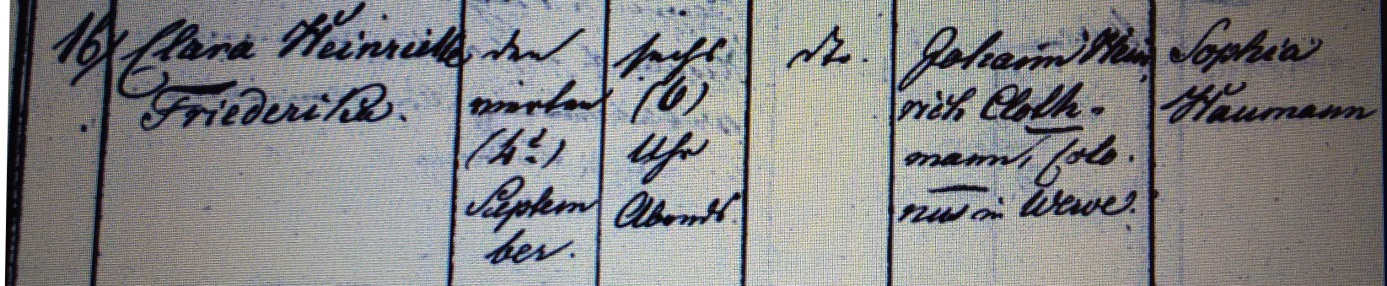 16
Clara Heinriette
Friederika.
den
vierten
(4t)
Septem
ber.
sechs
(6)
Uhr
Abends
dto.
Johann Hein
rich Cloth-
mann, Colo-
nus in Werve.
Sophia
Naumann